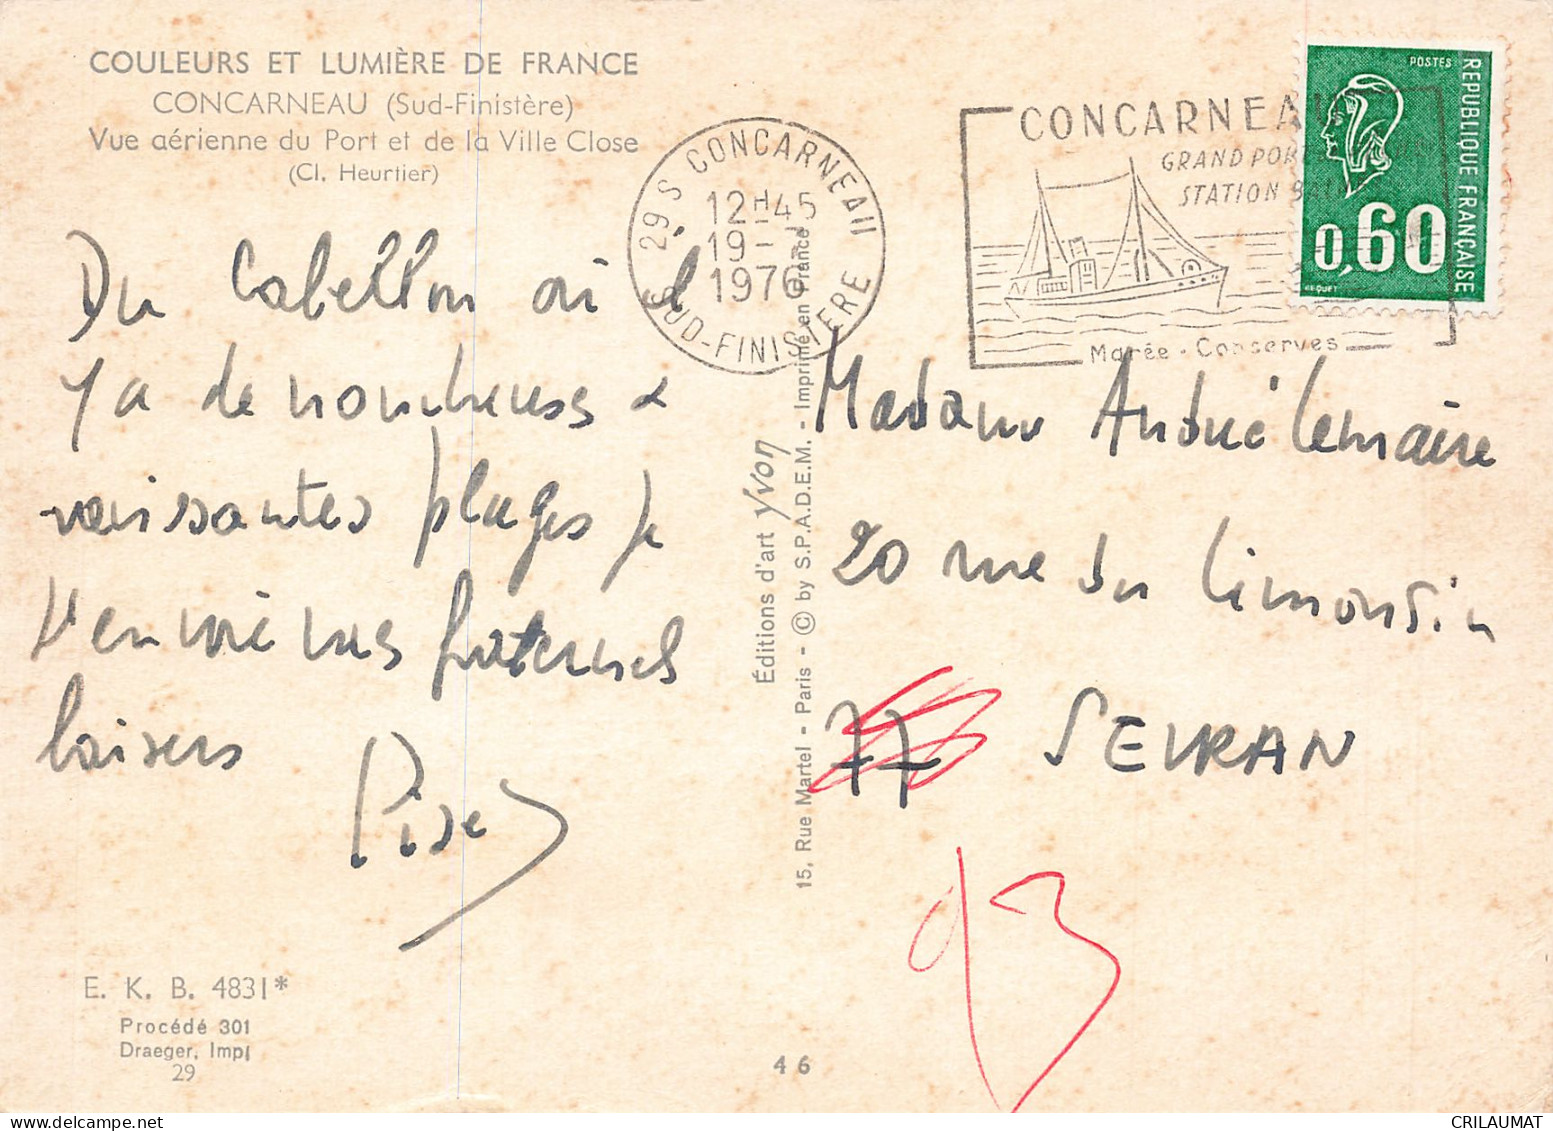 COULEURS ET LUMIÈRE DE FRANCE
CONCARNEAU (Sud-Finistère)
Vue aérienne du Port et de la Ville Close
(Cl. Heurtier)
29 S CONCARNEAU
12H45
19 -
1976
SUD-FINISTERE
CONCARNEAU
GRAND PORT
STATION
Marée - Conserves
POSTES
REPUBLIQUE FRANÇAISE
0,60
BEQUET
Du Cabellou où il
y a de nombreuses &
ravissantes plages je
t'envoie mes fraternels
baisers
Madame André Lemaire
20 rue du Limousin
77 SEVRAN
93
Éditions d'art Yvon
15, Rue Martel - Paris - © by S.P.A.D.E.M. - Imprimé en France
E. K. B. 4831*
Procédé 301
Draeger, Imp.
29
46
CRILAUMAT